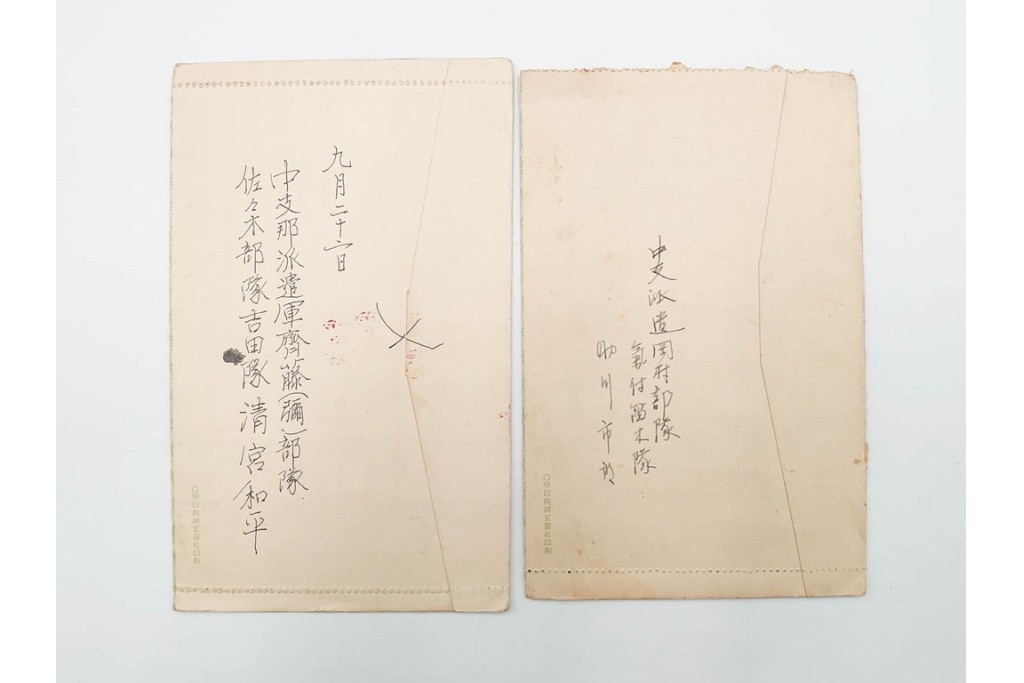 九月二十六日
中支那派遣軍齊藤(彌)部隊
佐々木部隊吉田隊 清宮和平
中支派遣岡村部隊
氣付 木隊
助川市郎